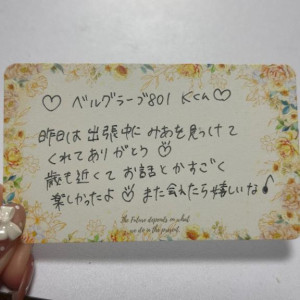 ♡ ベルグラーブ801 Kca ♡
昨日は 出張中に みあを見つけて
くれてありがとう ♡
歳も近くて お話とかすごく
楽しかったよ ♡ また会えたら嬉しいな♪
The Future depends on what
we do in the present.